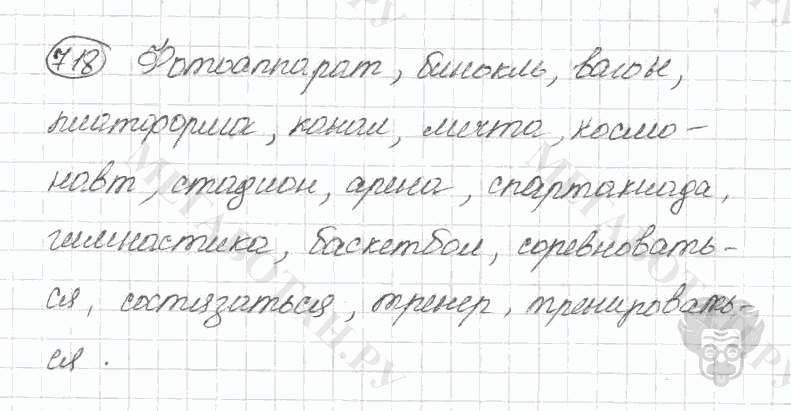 718 Фотоаппарат, бинокль, вагон,
платформа, канал, мечта, космо-
навт, стадион, арена, спартакиада,
гимнастика, баскетбол, соревновать-
ся, состязаться, тренер, тренировать-
ся.
МЕГАБОТАН.РУ
МЕГАБОТАН.РУ